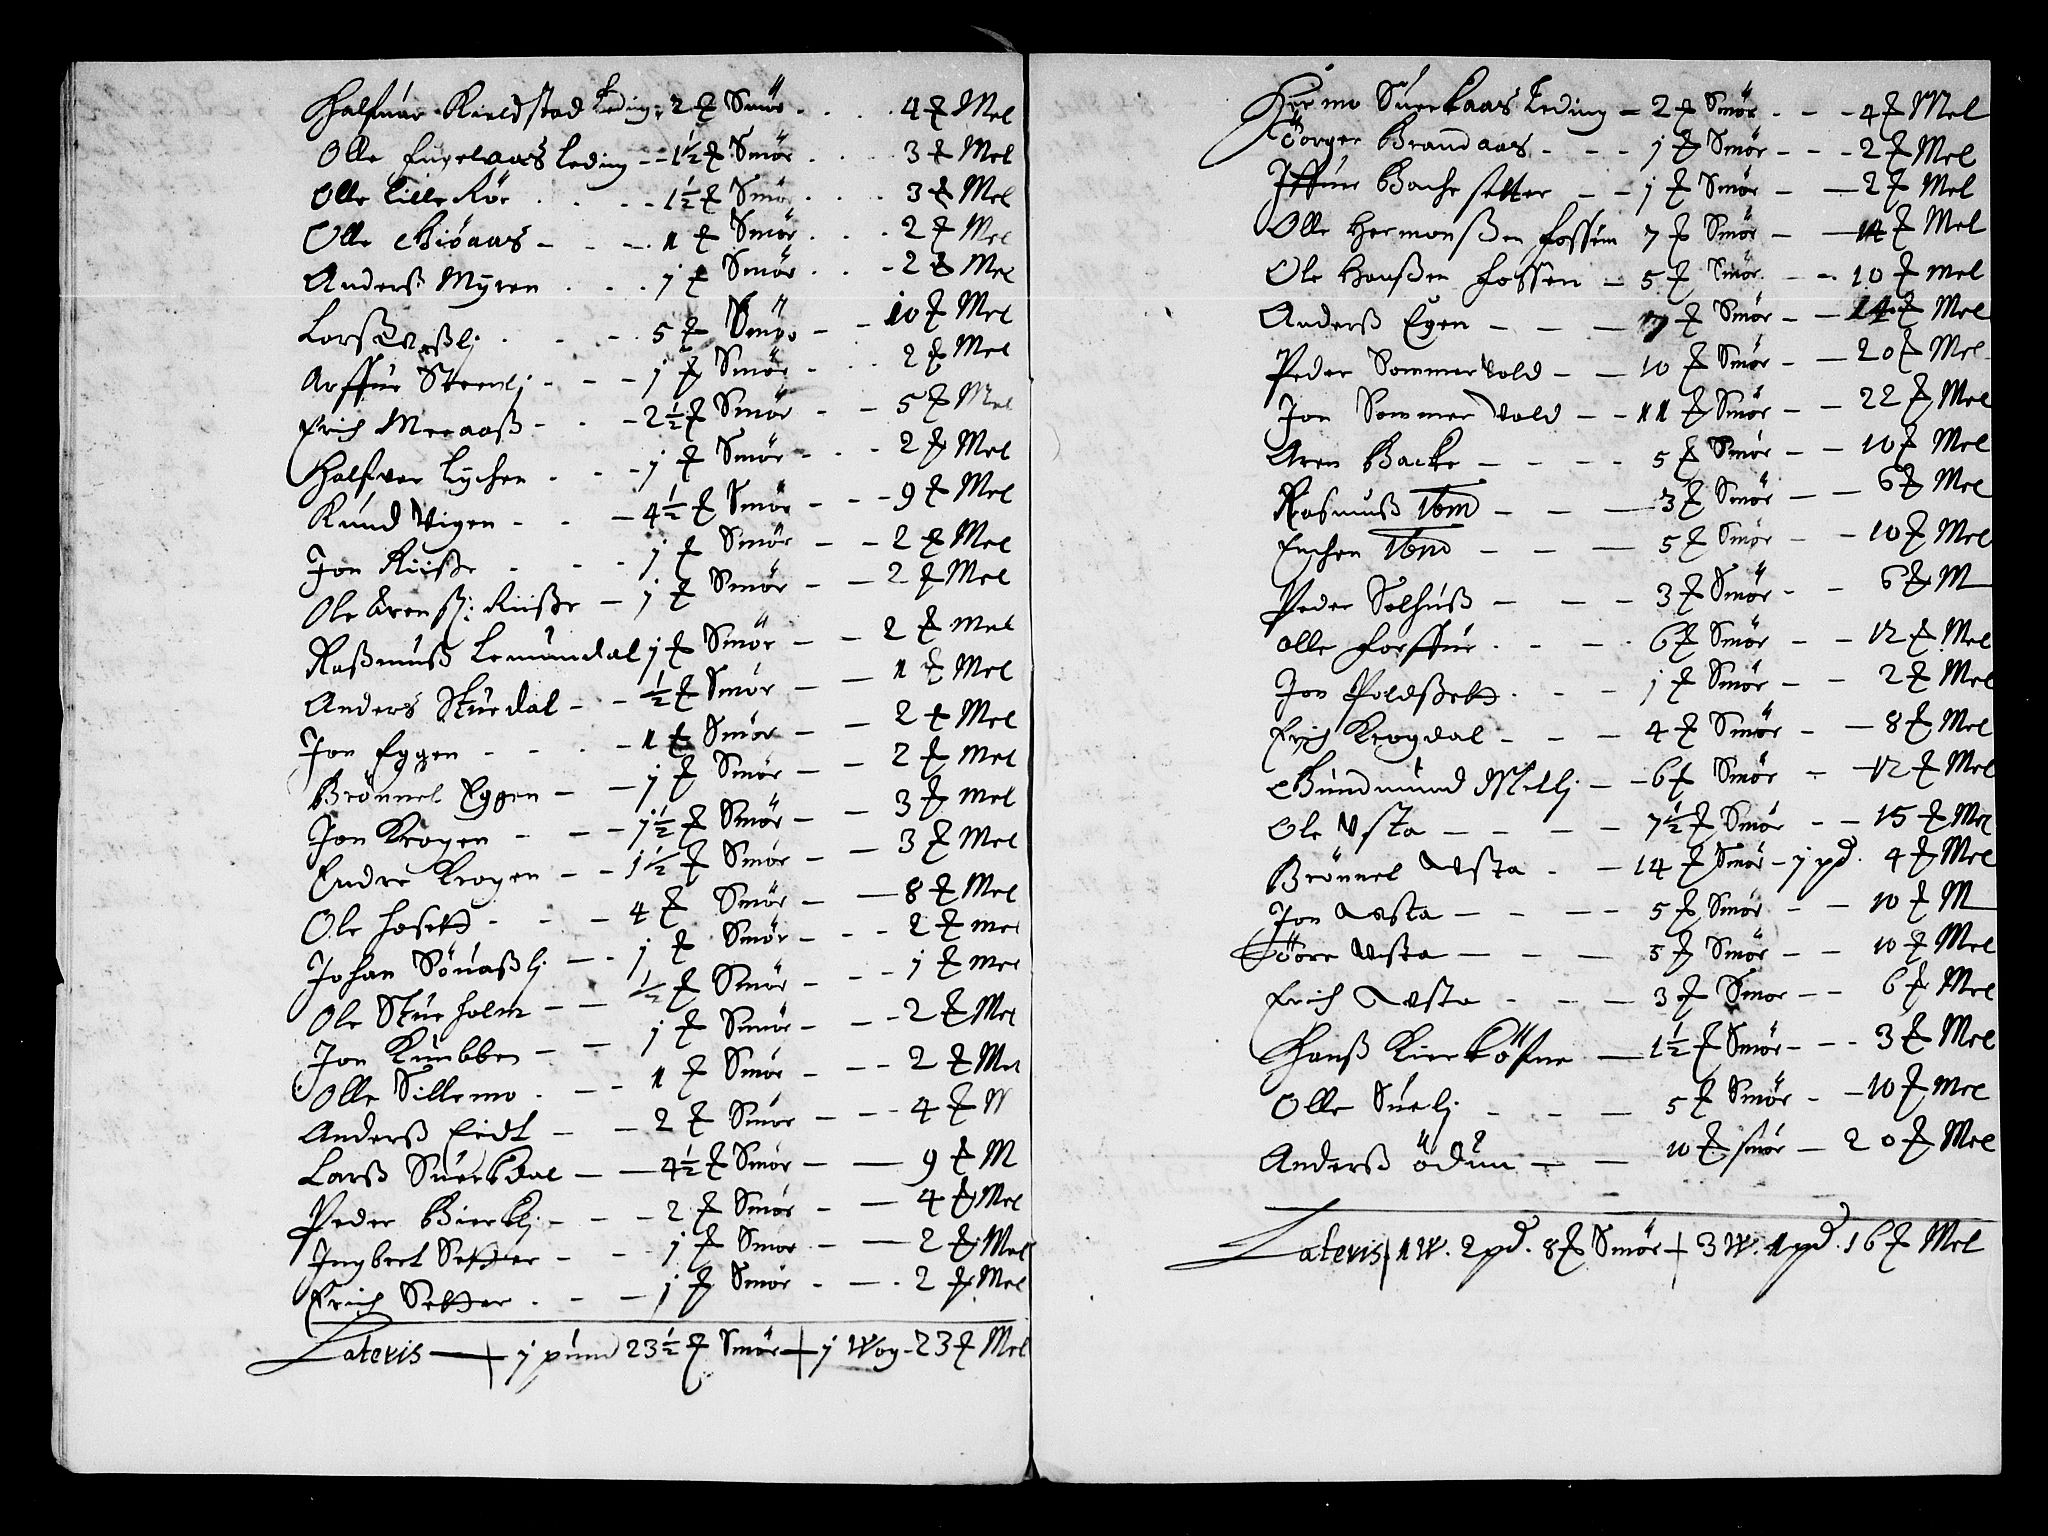 Halfuar Kieldstad Leding: 2 ℔ Smör . . . . 4 ℔ Mel
Olle Engelaaas Leding -- 1½ ℔ Smör . . . . 3 ℔ Mel
Olle Lille Rör . . . -- 1½ ℔ Smör . . . . 3 ℔ Mel
Olle Giöaas - - -- 1 ℔ Smör . . . 2 ℔ Mel
Anderß Mÿren . . . . j ℔ Smör . . - 2 ℔ Mel
Larß Weßlj . . . - 5 ℔ Smör - - 10 ℔ Mel
Arffue Steenlj - - - j ℔ Smör - . . 2 ℔ Mel
Erich Meeaaß - - - 2½ ℔ Smör - - 5 ℔ Mel
Halfver Lychen . - - j ℔ Smör - - . 2 ℔ Mel
Knud Vigen - - - 4½ ℔ Smör - - - 9 ℔ Mel
Jon Riiße - - - j ℔ Smör - - 2 ℔ Mel
Ole Arenß: Riiße - j ℔ Smör - - 2 ℔ Mel
Raßmuß Lemundal j ℔ Smör - - 2 ℔ Mel
Anders Stuedal - - ½ ℔ Smör - - 1 ℔ Mel
Jon Eggen - - . - 1 ℔ Smör - - 2 ℔ Mel
Brönnel Eggen - - j ℔ Smör - - 2 ℔ Mel
Jon Krogen - - - j½ ℔ Smör - - 3 ℔ Mel
Endre Krogen - - 1½ ℔ Smör - - 3 ℔ Mel
Ole Hosett - - - 4 ℔ Smör - - 8 ℔ Mel
Johan Sönaßlj - - j ℔ Smör - - - 2 ℔ Mel
Ole Stueholm - - ½ ℔ Smör - - - j ℔ Mel
Jon Kúmbben - - j ℔ Smör - - - 2 ℔ Mel
Olle Sillemo . - - 1 ℔ Smör - - - 2 ℔ Mel
Anderß Eidt - - 2 ℔ Smör - - - 4 ℔ M
Larß Suerkdal - - 4½ ℔ Smör - - 9 ℔ M
Peder Bierklj - - - 2 ℔ Smör - - 4 ℔ Mel
Ingbert Setter - - - j ℔ Smör . - - 2 ℔ Mel
Erich Setter . - - j ℔ Smör . - . 2 ℔ Mel
Lateris - j pund 23½ ℔ Smör - j Wog - 23 ℔ Mel
Hermo Suerkaas Leding - 2 ℔ Smör . - - 4 ℔ Mel
Törger Brandaas - - - j ℔ Smör - - - 2 ℔ Mel
Iffuer Bache setter - - j ℔ Smör - - 2 ℔ Mel
Olle Hermonßen Fossem 7 ℔ Smör - - 14 ℔ Mel
Ole Hanßen Fossen - 5 ℔ Smör - - 10 ℔ Mel
Anderß Egen - - - 7 ℔ Smör - - 14 ℔ Mel
Peder Sommervold - - 10 ℔ Smör - - 20 ℔ Mel
Jon Sommer Vold - - 11 ℔ Smör - - 22 ℔ Mel
Aren Backe - - - - 5 ℔ Smör - - 10 ℔ Mel
Rasmuß Ibm - - - 3 ℔ Smör - - 6 ℔ Mel
Enchen Ibm - - - 5 ℔ Smör - - 10 ℔ Mel
Peder Solhúß - - - 3 ℔ Smör - - 6 ℔ M
Olle Forffúe . - - . 6 ℔ Smör - - 12 ℔ Mel
Jon Poldßett . - - j ℔ Smör - - 2 ℔ Mel
Erich Krogdal - - - 4 ℔ Smör - - 8 ℔ Mel
Gúndmúnd Metlj - - 6 ℔ Smör - - 12 ℔ Mel
Ole Vsta - - - - 7½ ℔ Smör - - 15 ℔ Mel
Brönnel Vsta . - 14 ℔ Smör - j pd. 4 ℔ Mel
Jon Vsta - - - - 5 ℔ Smör - - 10 ℔ M
Töre Vsta - - - 5 ℔ Smör - - 10 ℔ Mel
Erich Vsta - - - 3 ℔ Smör - - 6 ℔ Mel
Hanß Kierköfne - 1½ ℔ Smör - - - 3 ℔ Mel
Olle Súelj - - - 5 ℔ Smör - - 10 ℔ Mel
Anderß Ödům - - 10 ℔ smör - 20 ℔ Mel
Lateris 1 W. 2 pd. 8 ℔ Smör - 3 W. 1 pd. 16 ℔ Mel